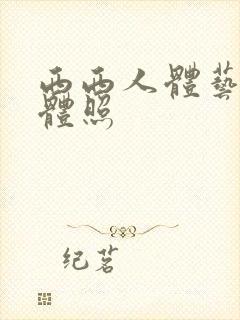 西西人體藝
體照
纪茗